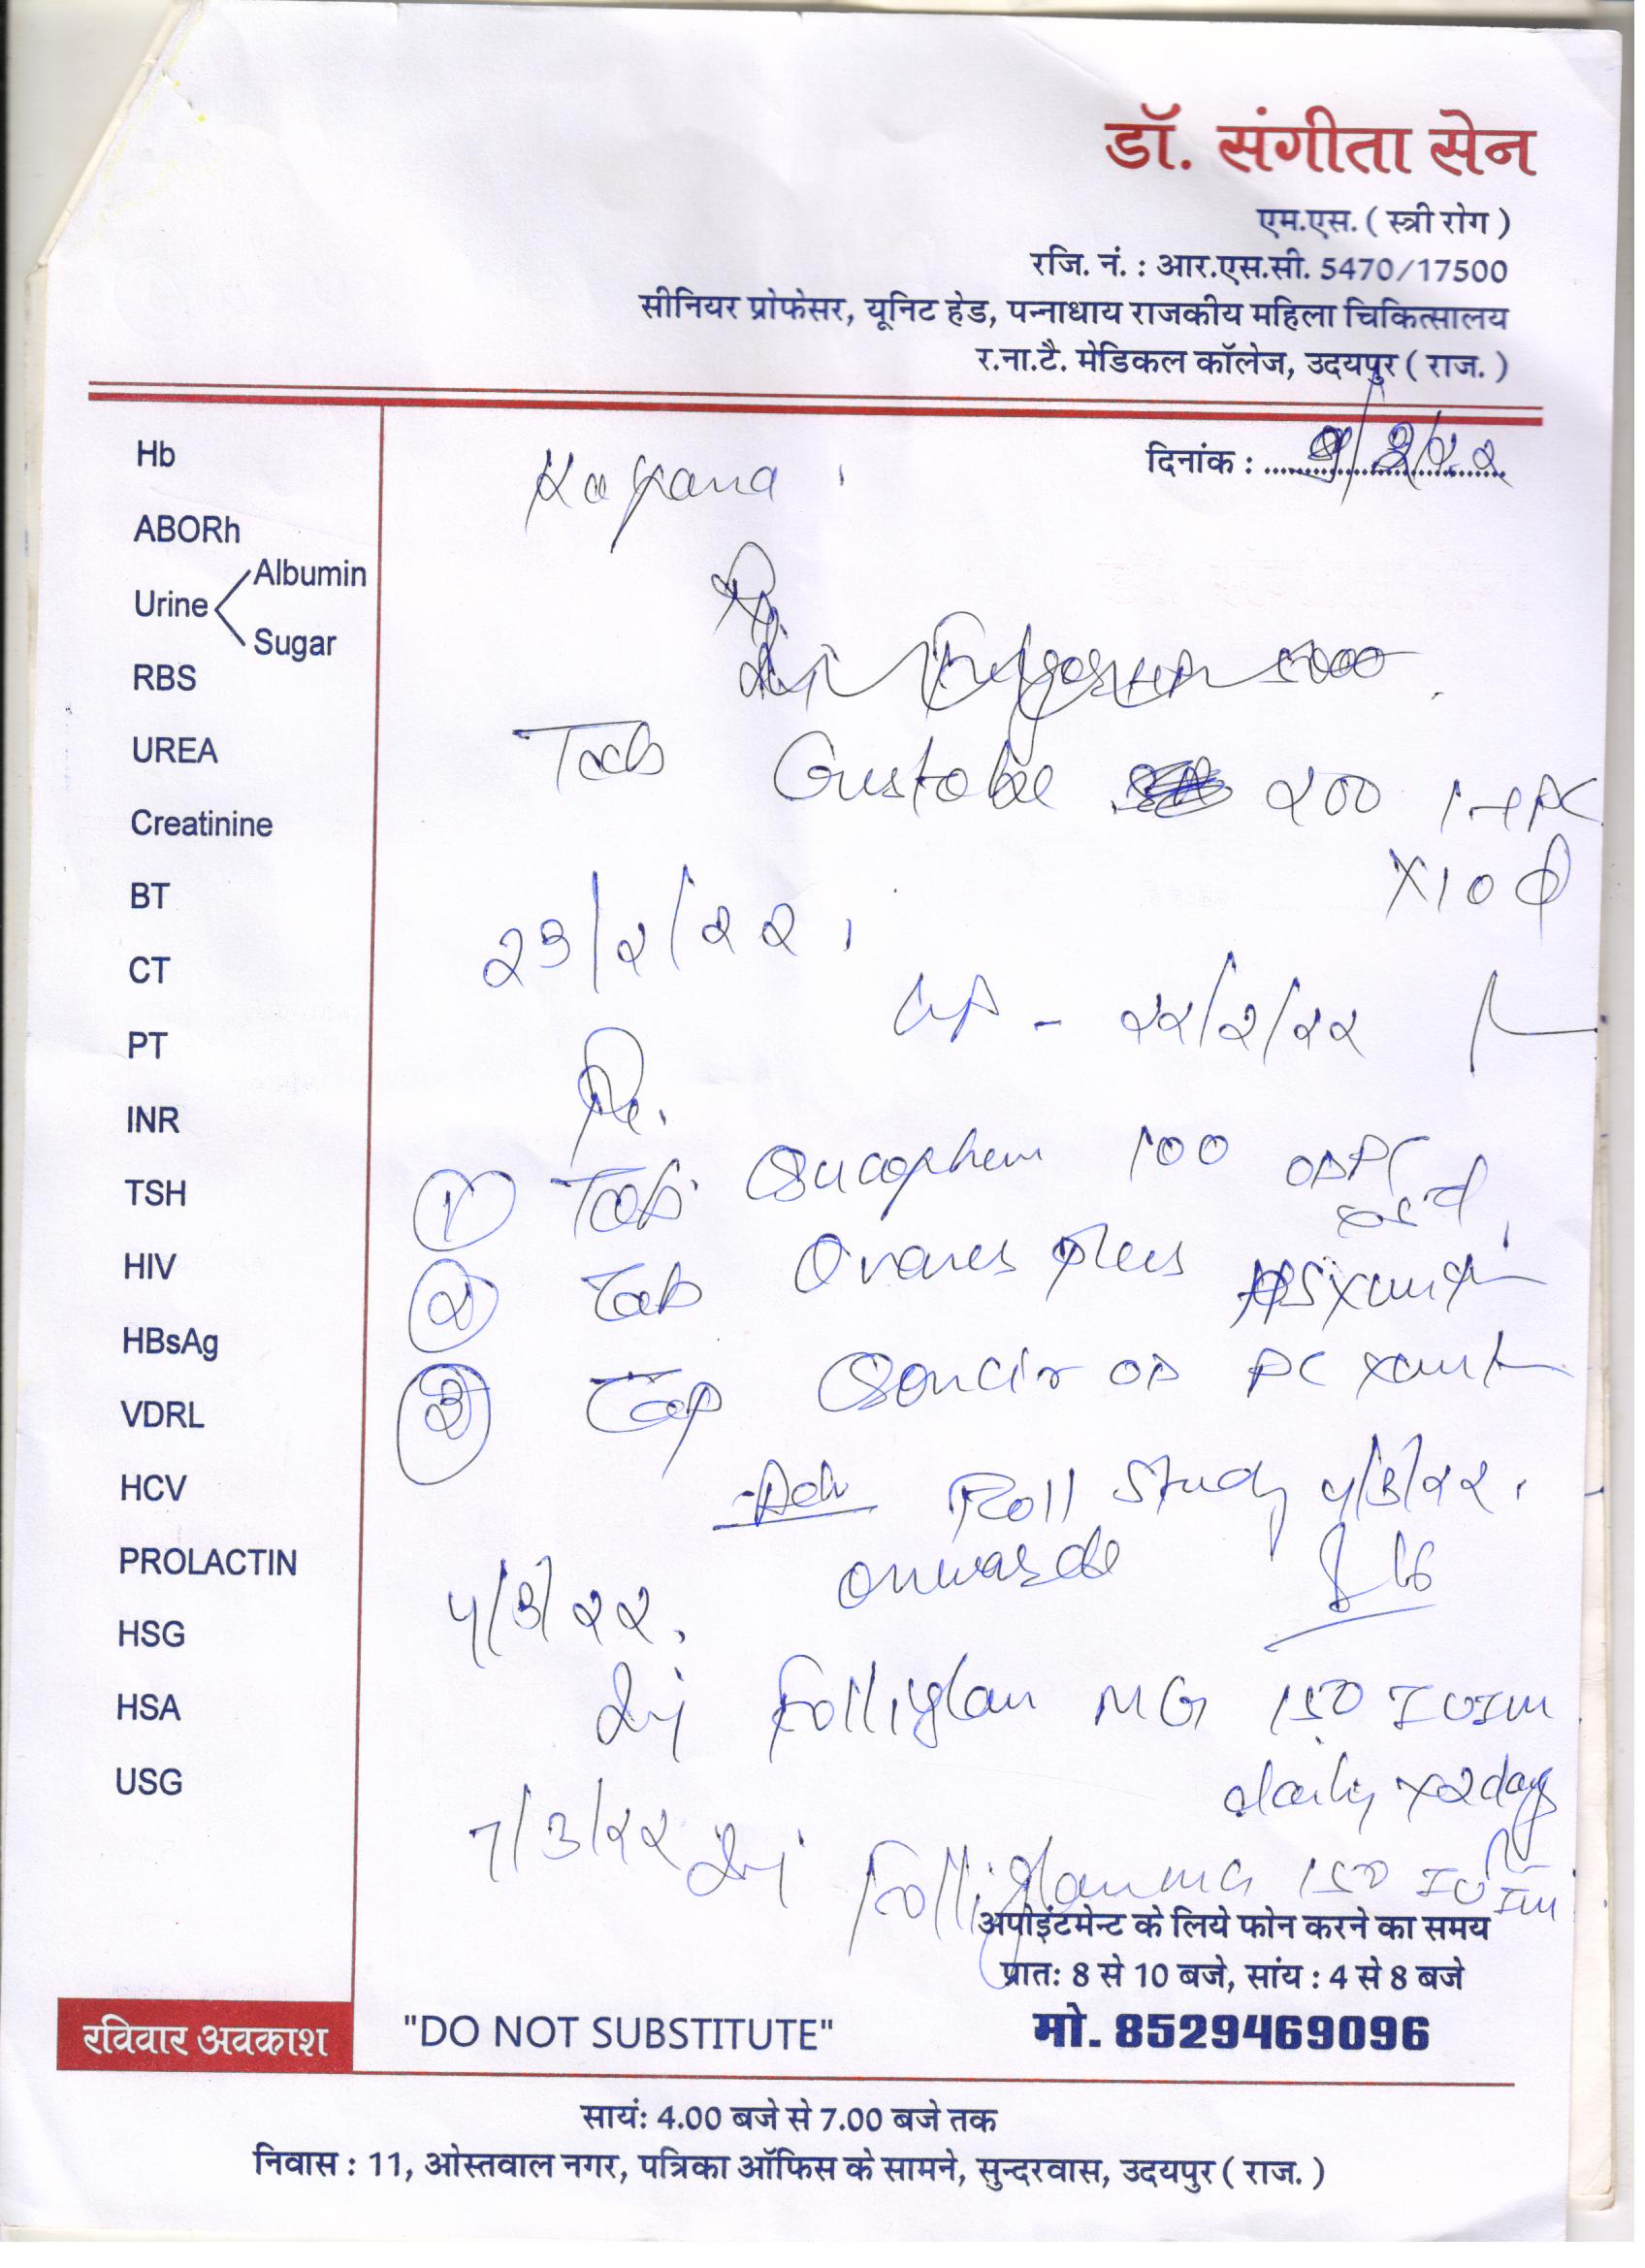 डॉ. संगीता सेन
एम.एस. ( स्त्री रोग )
रजि. नं. : आर.एस.सी. 5470/17500
सीनियर प्रोफेसर, यूनिट हेड, पन्नाधाय राजकीय महिला चिकित्सालय
र.ना.टै. मेडिकल कॉलेज, उदयपुर ( राज. )
दिनांक :
Hb
ABORh
Urine Albumin
Sugar
RBS
UREA
Creatinine
BT
CT
PT
INR
TSH
HIV
HBsAg
VDRL
HCV
PROLACTIN
HSG
HSA
USG
Tab 200
X10 d
२३/२/२२
२२/२/२२
Rx
① Tab 100 OD PC
② Tab Ovares plus
③ Cap OD PC
Adv Foll Study ५/३/२२
onwards
५/३/२२
Inj Folliglan MG 150 IU IM
daily x २ days
७/३/२२ Inj Folliglan MG 150 IU IM
अपोइंटमेन्ट के लिये फोन करने का समय
प्रात: 8 से 10 बजे, सांय : 4 से 8 बजे
रविवार अवकाश "DO NOT SUBSTITUTE" मो. 8529469096
सायं: 4.00 बजे से 7.00 बजे तक
निवास : 11, ओस्तवाल नगर, पत्रिका ऑफिस के सामने, सुन्दरवास, उदयपुर ( राज. )